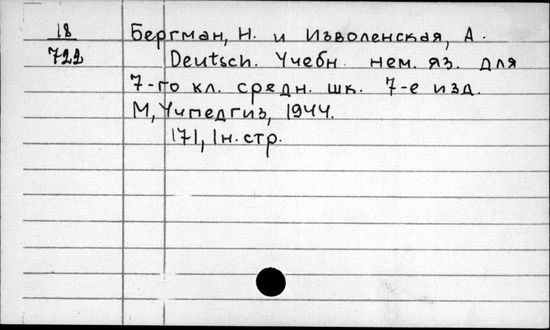 18
722
Бергман, Н. и Изволенская, А.
Deutsch. Учебн. нем. яз. для
7-го кл. средн. шк. 7-е изд.
М, Учпедгиз, 1944.
171, 1н. стр.